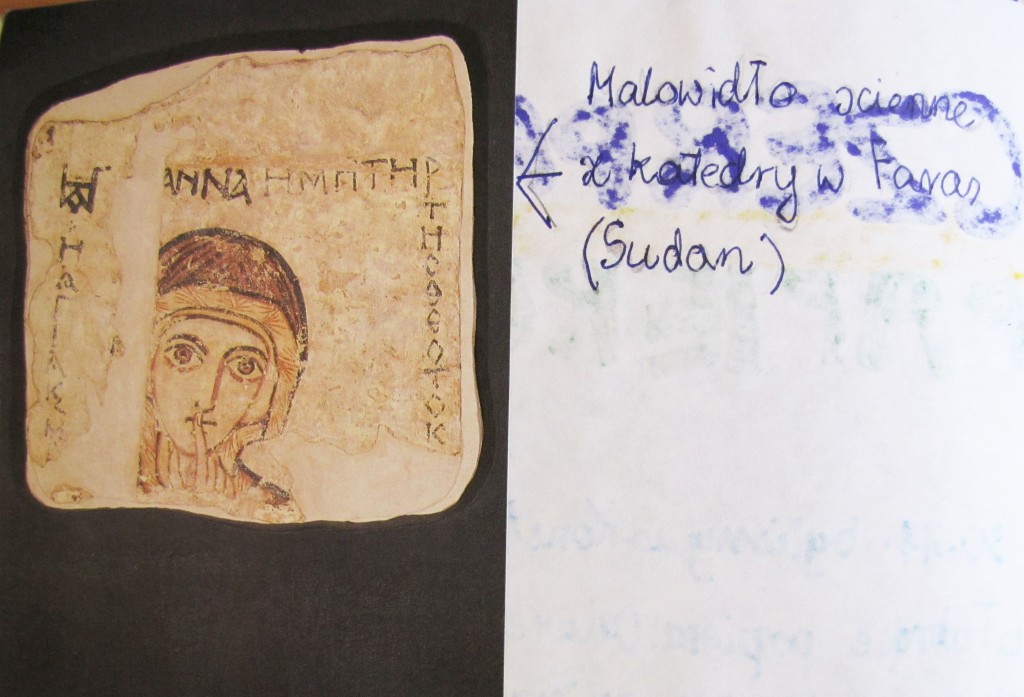 ΑΝΝΑ ΗΜΗΤΗΡ
ΤΗCΘΕΟΤΟΚ
ΗΑΓΙΑ
Malowidło scienne
z katedry w Faras
(Sudan)